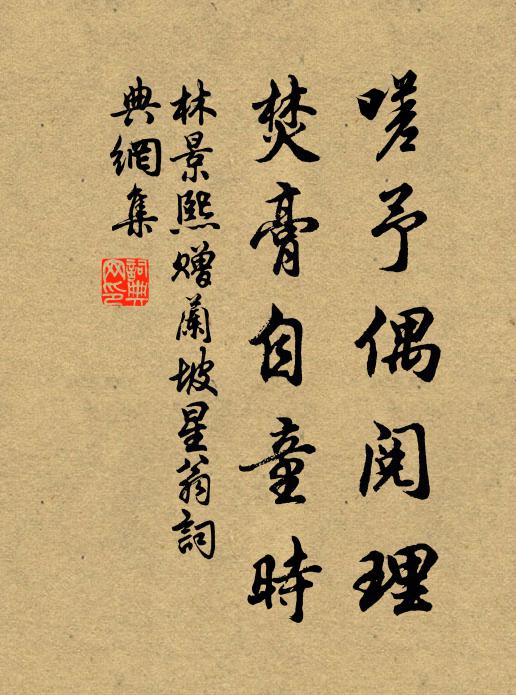 嗟予偶閱理
焚膏自童時
林景熙贈蘭坡星翁詞
典網集
詞典
网印